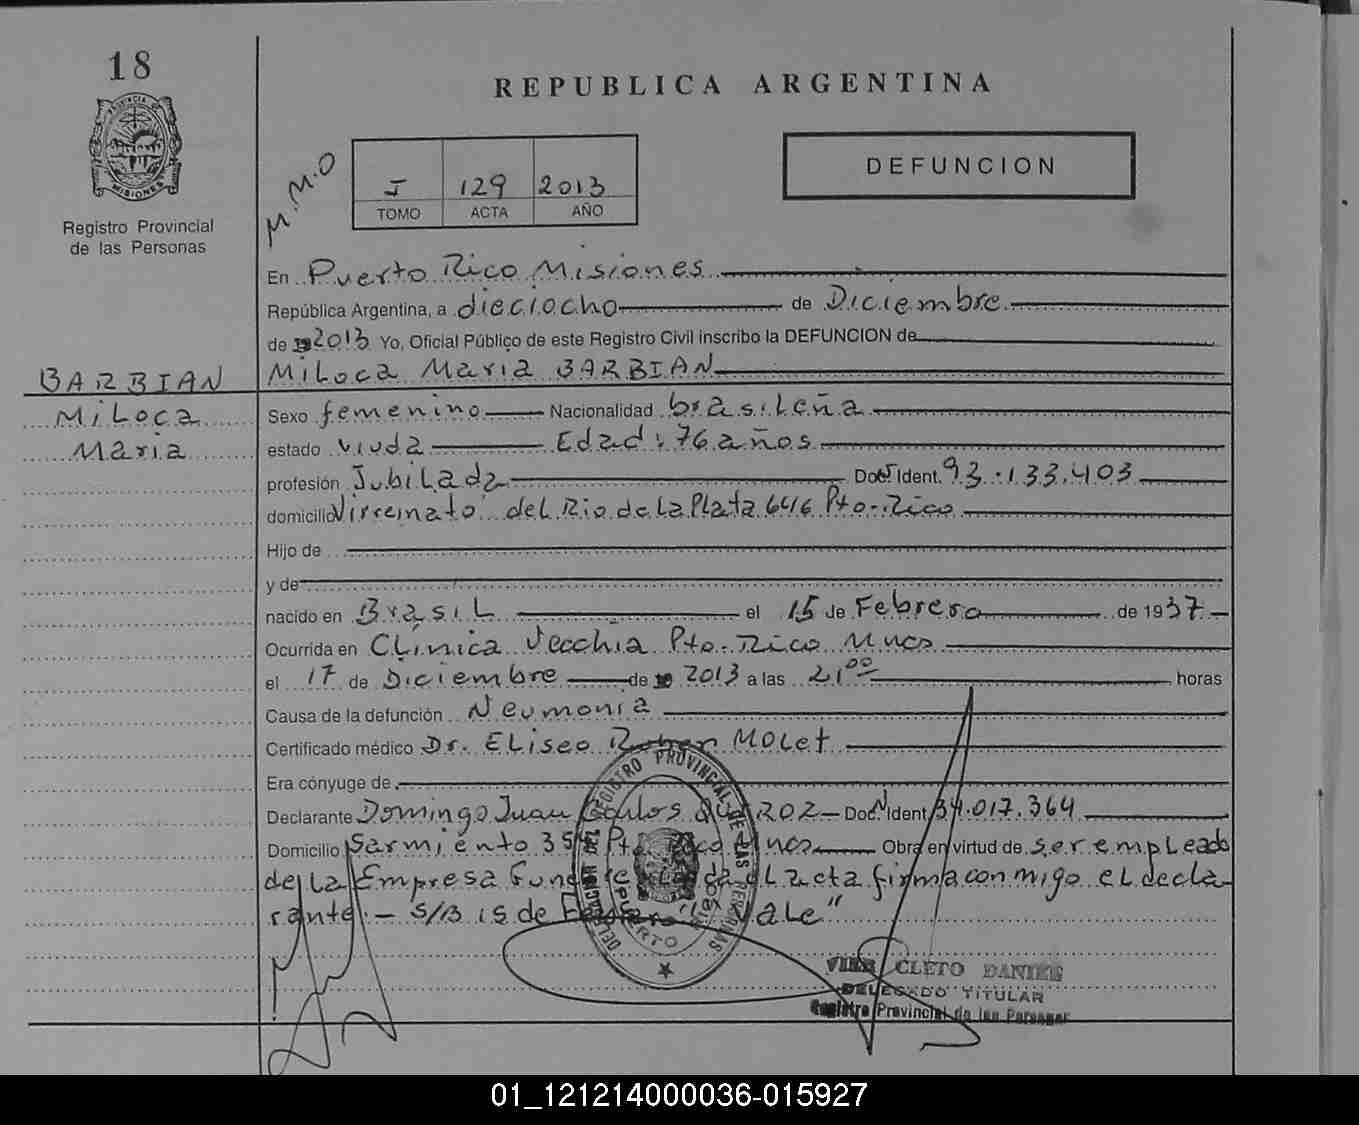 18
REPUBLICA ARGENTINA
PROVINCIA DE
MISIONES
Registro Provincial
de las Personas
DEFUNCION
M.M.O
I 129 2013
TOMO ACTA AÑO
En Puerto Rico Misiones
República Argentina, a dieciocho de Diciembre
de 2013 Yo, Oficial Público de este Registro Civil inscribo la DEFUNCION de
BARBIAN
Miloca
Maria
Miloca Maria BARBIAN
Sexo femenino Nacionalidad brasileña
estado viuda Edad: 76 años
profesión Jubilada Doc. Ident. 93.133.403
domicilio Virreinato del Rio de La Plata 646 Pto-Rico
Hijo de
y de
nacido en Brasil el 15 de Febrero de 1937
Ocurrida en Clínica Vecchia Pto. Rico Mnes
el 17 de Diciembre de 2013 a las 21 00 horas
Causa de la defunción Neumonia
Certificado médico Dr. Eliseo Ruben Molet
Era cónyuge de
Declarante Domingo Juan Carlos Doc. Ident 34.017.364
Domicilio Sarmiento 354 Pto Rico Mnes Obra en virtud de ser empleado
de La Empresa Leida el acta firma conmigo el decla-
rante.- S/B 15 de Febrero "Vale"
DELEGACION DEL REGISTRO PROVINCIAL DE LAS PERSONAS
PUERTO
CLETO DANIEL
DELEGADO TITULAR
Registro Provincial de las Personas
01_121214000036-015927